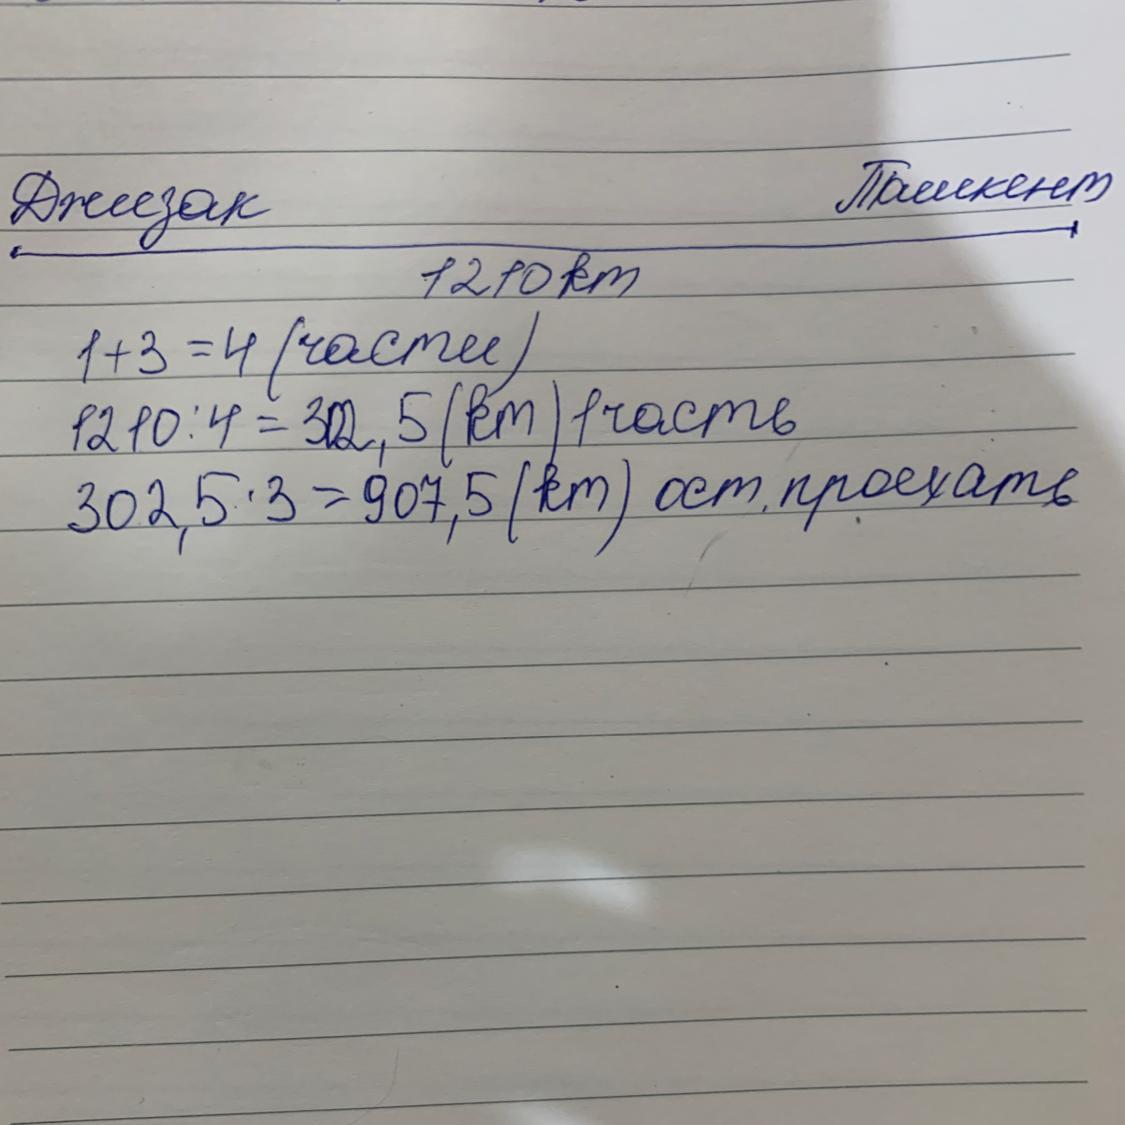 Джизак Ташкент
1210 km
1+3=4 (части)
1210:4=302,5 (km) 1 часть
302,5·3=907,5 (km) ост. проехать